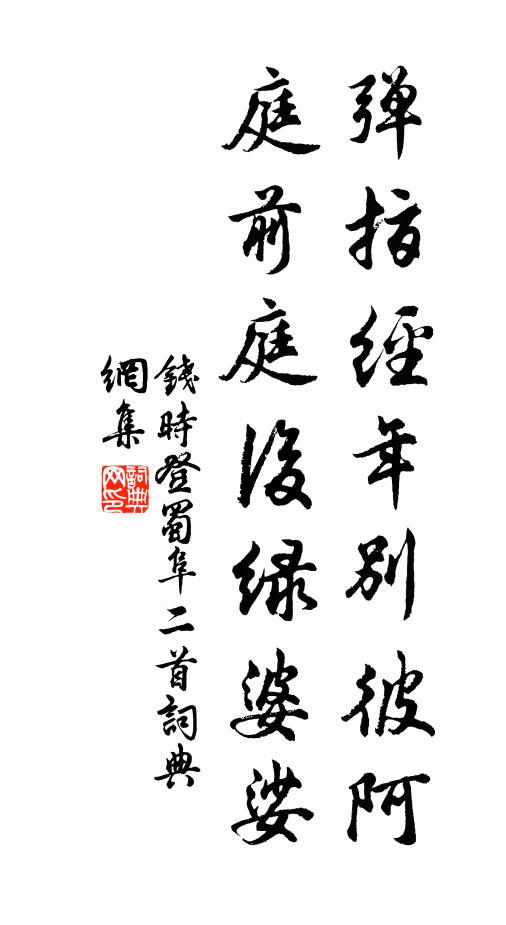 弹指經年别彼阿
庭前庭後緑婆娑
錢時登蜀阜二首詞典
網集
詞典網印